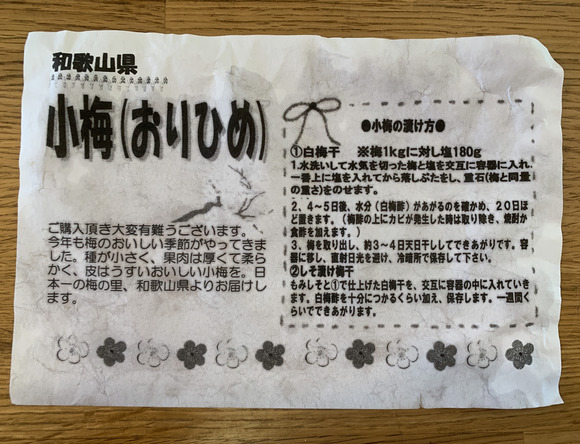 和歌山県
小梅(おりひめ)
ご購入頂き大変有難うございます。
今年も梅のおいしい季節がやってきま
した。種が小さく、果肉は厚くて柔ら
かく、皮はうすいおいしい小梅を。日
本一の梅の里、和歌山県よりお届けし
ます。
●小梅の漬け方●
①白梅干 ※梅1kgに対し塩180g
1.水洗いして水気を切った梅と塩を交互に容器に入れ、
一番上に塩を入れてから落しぶたをし、重石(梅と同量
の重さ)をのせます。
2、4～5日後、水分(白梅酢)があがるのを確かめ、20日ほ
ど置きます。(梅酢の上にカビが発生した時は取り除き、焼酎か
食酢を加えます。)
3、梅を取り出し、約3～4天日干ししてできあがりです。容
器に移し、直射日光を避け、冷暗所で保存して下さい。
②しそ漬け梅干
もみしそと①で仕上げた白梅干を、交互に容器の中に入れていき
ます。白梅酢を十分につかるくらい加え、保存します。一週間く
らいでできあがります。